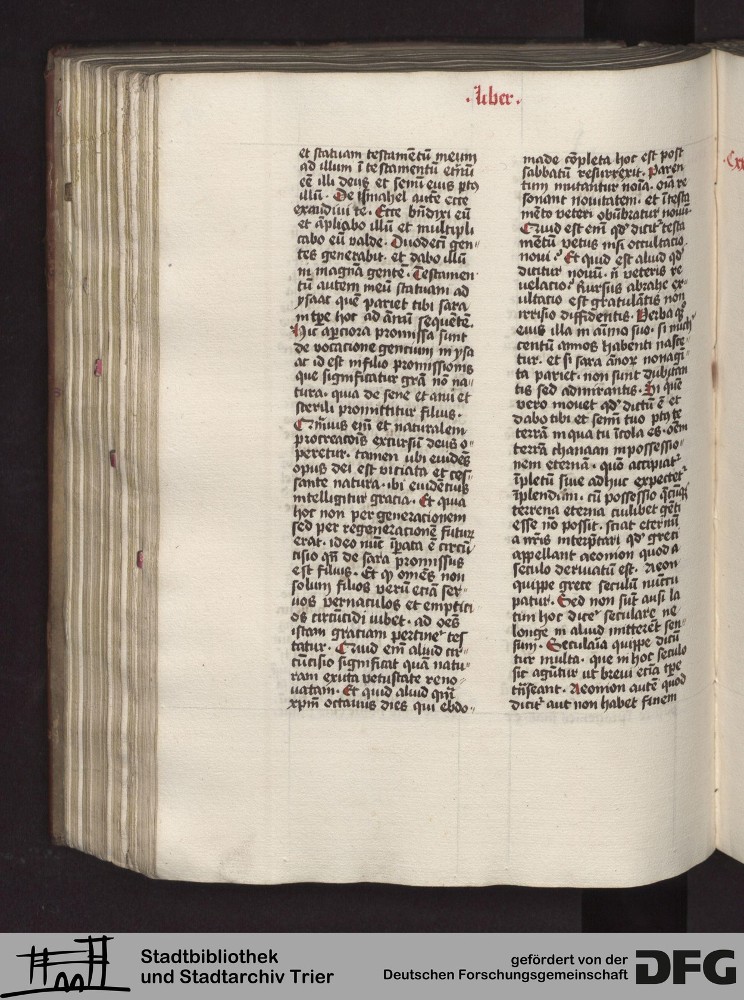 .Liber.
et statuam testamētū meum
ad illum ī testamentū etn̄ū
eē illi deus et semī eius pꝰ
illū. De ismahel autē ecce
exaudiui te. Ecce bn̄dixi eū
et āpliabo illū et multipli
cabo eū valde. Duodecī gen⸗
tes generabit. et dabo illū
in magnā gentē. Testamen
tū autem meū statuam ad
ysaac quē pariet tibi sara
in tp̄e hoc ad ānū sequētē.
Hic apciora promissa sunt
de vocacione gentium in ysa
ac id est in filio promissionis
que significatur grā nō na⸗
tura. quia de sene et anu et
sterili promittitur filius.
Quīuis em̄ et naturalem
procreacōis excursū deus o⸗
peretur. tamen ubi euidēs
opus dei est viciata et ces⸗
sante natura. ibi euidentius
intelligitur gracia. Et quia
hoc non per generacionem
sed per regeneracionē futurū
erat. ideo nūc īpata ē circū⸗
cisio qn̄ de sara promissus
est filius. Et ꝙ omēs non
solum filios verū etiā ser⸗
uos vernaculos et empticī
os circūcidi iubet. ad oēs
istam graciam pertineꝰ tes
tatur. Quid em̄ aliud cir⸗
cūcisio significat quā natu⸗
ram exuta vetustate reno⸗
uatam. Et quid aliud qm̄
xp̄m octauus dies qui ebdo⸗
made cōpleta hoc est post
sabbatū resurrexit. Paren
tum mutantur noīa. oīa re
sonant nouitatem. et ī testa
mēto veteri obūbratur nouū.
Quid est em̄ qd̓ dicitꝰ testa
mētū vetus nisi occultacio
noui? Et quid est aliud qd̓
dicitur nouū. n̄ veteris re
uelacio? Rursus abrahe ex⸗
ultacio est gratulātis non
irrisio diffidentis. Verba qꝫ
eius illa in aīmo suo. si mich̓
centū annos habenti nasce⸗
tur. et si sara ānoꝝ nonagī⸗
ta pariet. non sunt dubitan
tis sed admirantis. Si quē
vero mouet qd̓ dictū ē et
dabo tibi et semī tuo pꝰ te
terrā in qua tu īcola es. oēm
terrā chanaan in possessio⸗
nem eternā. quō accipiatꝰ
īpletū siue adhuc expectetꝰ
īplendum. cū possessio q̄cūqꝫ
terrena eterna cuilibet gēti
esse nō possit. sciat eternū
a nr̄is interp̄tari qd̓ greci
appellant aeomion quod a
seculo deriuatū est. Aeon
quippe grece seculū nūcu
patur. Sed non sūt ausi la
tini hoc dicer̓ seculare ne
longe in aliud mitterēt sen⸗
sum. Secularia quippe dicū
tur multa. que in hoc seculo
sic agūtur ut breui eciā tp̄e
trāseant. Aeomion autē quod
dicitꝰ aut non habet finem
Stadtbibliothek
und Stadtarchiv Trier
gefördert von der
Deutschen Forschungsgemeinschaft
DFG